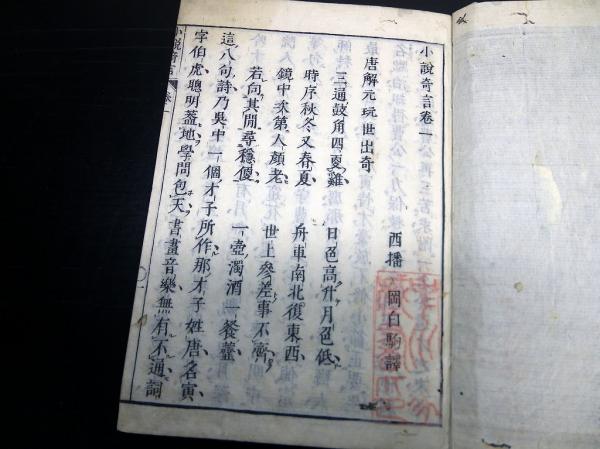 小說奇言卷一
西播 岡白駒譯
唐解元玩世出奇
三通鼓角四更雞 日色高升月色低
時序秋冬又春夏 舟車南北復東西
鏡中次第人顏老 世上參差事不齊
若向其間尋穩便 一壺濁酒一餐虀
這八句詩乃吳中一個才子所作那才子姓唐名寅
字伯虎聰明蓋地學問包天書畫音樂無有不通詞
小說奇言